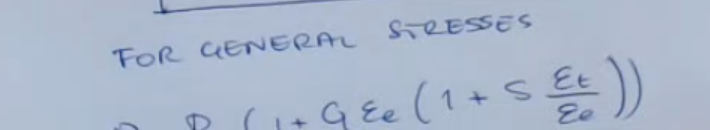 FOR GENERAL STRESSES
D (1 + G εe (1 + S εt/εe))